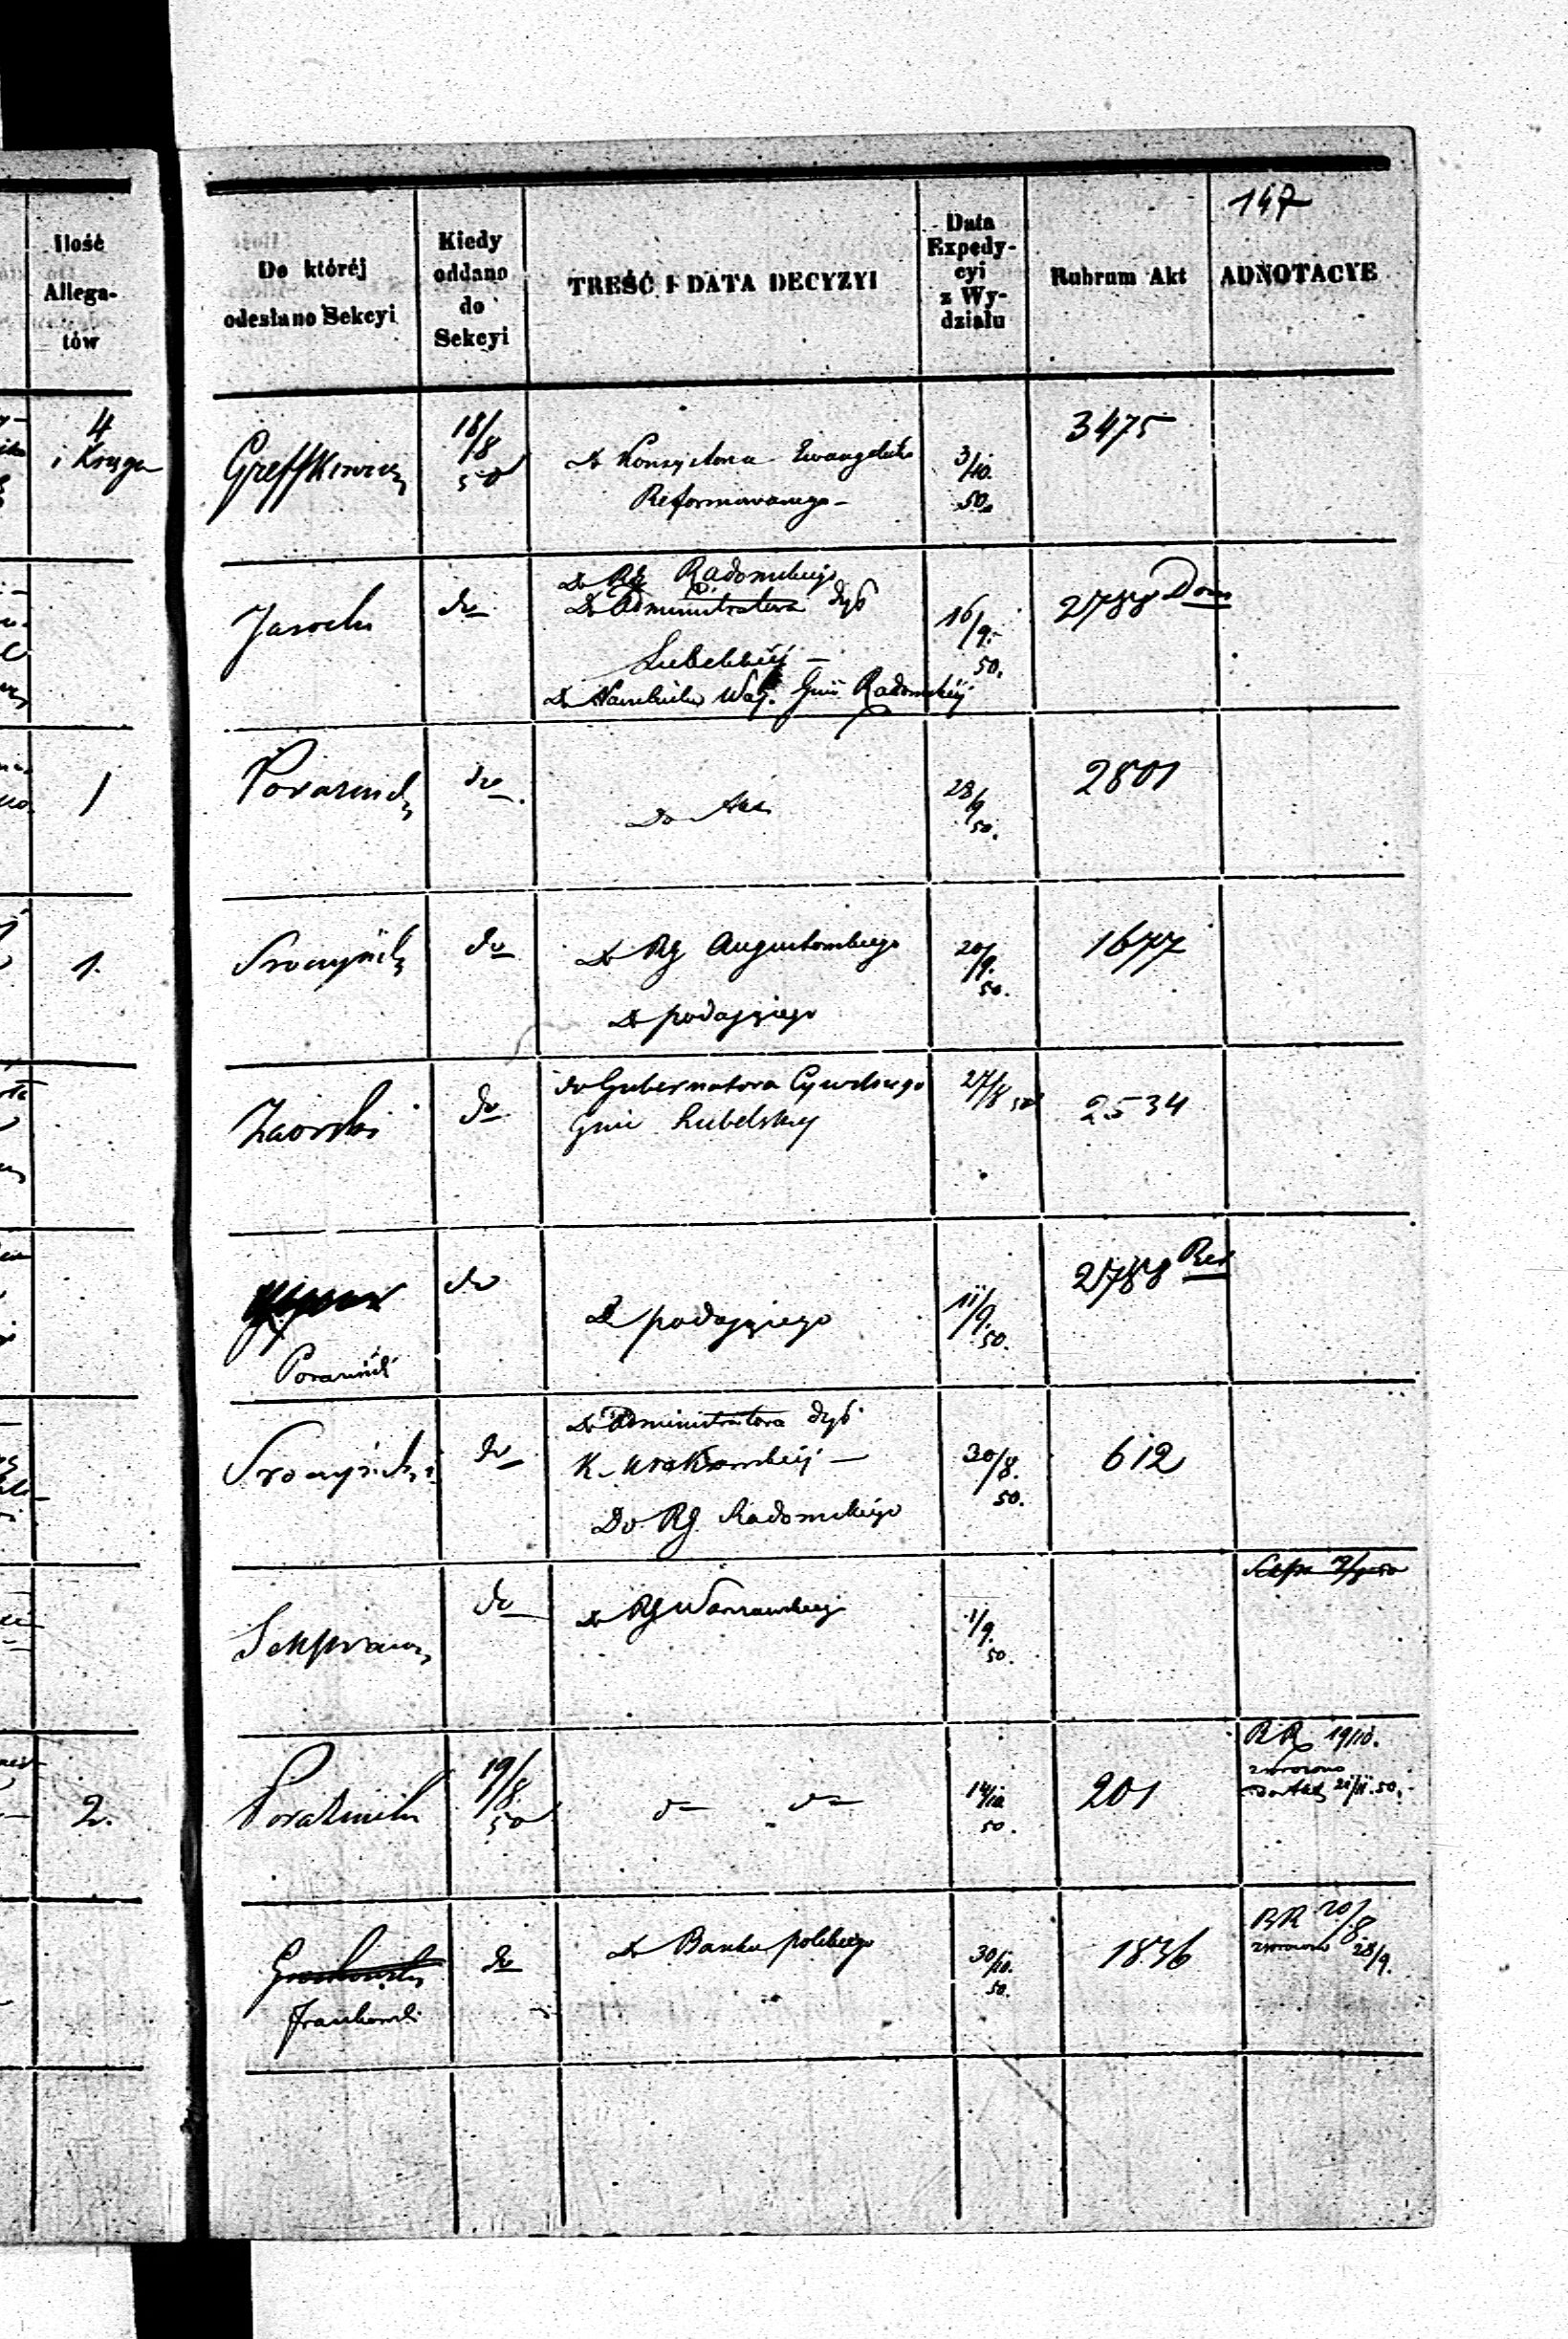 147
Ilość
Allega-
tów
Do któréj
odesłano Sekcyi
Kiedy
oddano
do
Sekcyi
TREŚĆ I DATA DECYZYI
Data
Expedy-
cyi
z Wy-
działu
Rubrum Akt
ADNOTACYE
4
i Księga
18/8
50
Do Konsystorza Ewangelicko
Reformowanego –
3/10.
50.
3475
Jarocki
do
Do RG Radomskiego
Do Administratora dyó
Lubelskiéj –
Do Naczelnika Woj. Gnii Radomskiéj
16/9.
50.
2788 Dom
1
Poraziński
do
Do Akt
28/9
50.
2801
1.
Sroczyński
do
Do RG Augustowskiego
Do podającego
20/9.
50.
1677
Zaorski
do
do Gubernatora Cywilnego
Gnii Lubelskiej
27/8 50
2534
do
Do podającego
11/9.
50.
2788 Rel
Poraziński
Sroczyński
do
Do Administratora dyó
K. Krakowskiéj –
Do RG Radomskiego
30/8.
50.
612
do
Do RG Warszawskiego
1/9.
50.
2.
Poraziński
19/8
50
do do
14/10
50.
201
RR 19/10.
zwrócono
do Akt 21/11.50.
Grochowski
Frankowski
do
Do Banku polskiego
30/10.
50.
1836
RR 20/8
zwrócono 28/9.